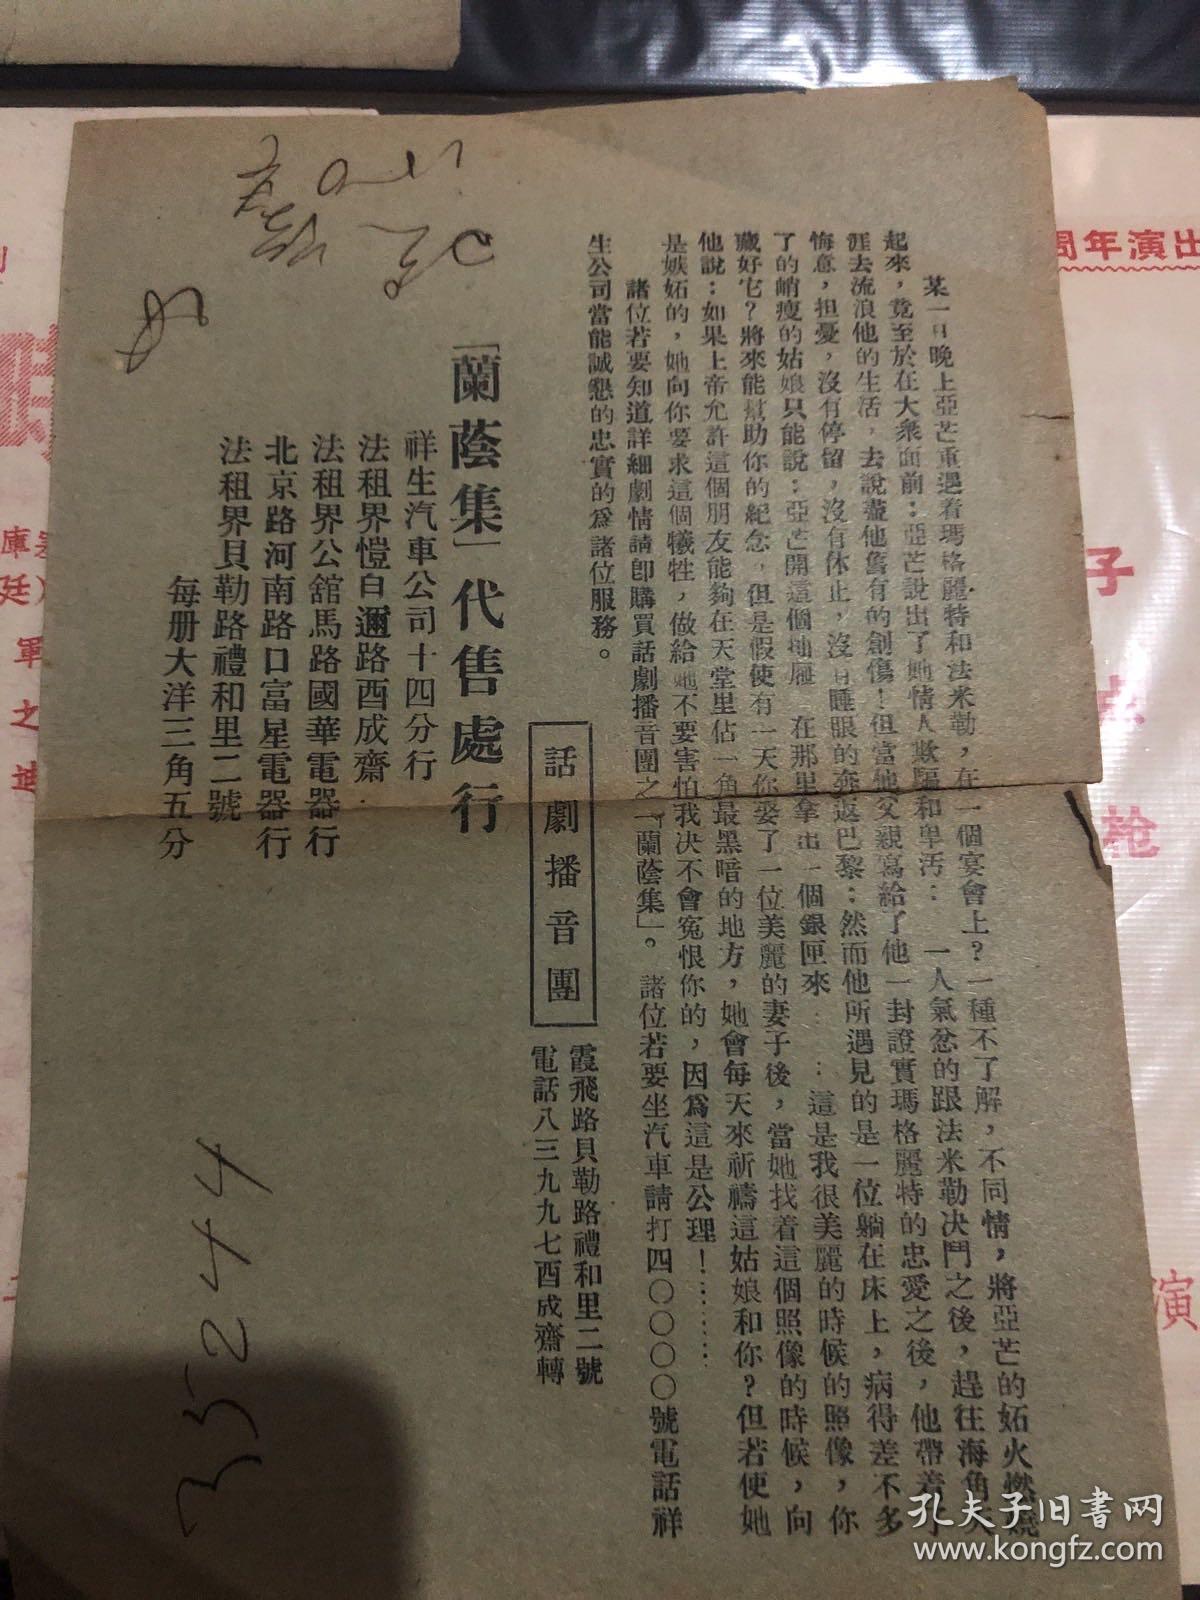 某一日晚上亞芒重遇着瑪格麗特和法米勒，在一個宴會上？一種不了解，不同情，將亞芒的妬火燃燒
起來，竟至於在大衆面前：亞芒說出了她情人欺騙和卑汚：　一人氣忿的跟法米勒決鬥之後，趕往海角天
涯去流浪他的生活，去說盡他舊有的創傷！但當他父親寫給了他一封證實瑪格麗特的忠愛之後，他帶着了
悔意，担憂，沒有停留，沒有休止，沒有睡眼的奔返巴黎：然而他所遇見的是一位躺在床上，病得差不多
了的峭瘦的姑娘只能說：亞芒開這個抽屜　在那里拿出一個銀匣來：：這是我很美麗的時候的照像，你
藏好它？將來能幫助你的紀念，但是假使有一天你娶了一位美麗的妻子後，當她找着這個照像的時候，向
他說：如果上帝允許這個朋友能夠在天堂里佔一角最黑暗的地方，她會每天來祈禱這姑娘和你？但若使她
是嫉妬的，她向你要求這個犧牲，做給她不要害怕我決不會冤恨你的，因爲這是公理！………
諸位若要知道詳細劇情請卽購買話劇播音團之「蘭蔭集」。諸位若要坐汽車請打四〇〇〇〇號電話祥
生公司當能誠懇的忠實的爲諸位服務。
話劇播音團
霞飛路貝勒路禮和里二號
電話八三九九七酉成齋轉
「蘭蔭集」代售處行
祥生汽車公司十四分行
法租界愷自邇路酉成齋
法租界公舘馬路國華電器行
北京路河南路口富星電器行
法租界貝勒路禮和里二號
每册大洋三角五分
35244
周年演出
子
枪
演
庫
廷
軍
之
孔夫子旧书网
www.kongfz.com